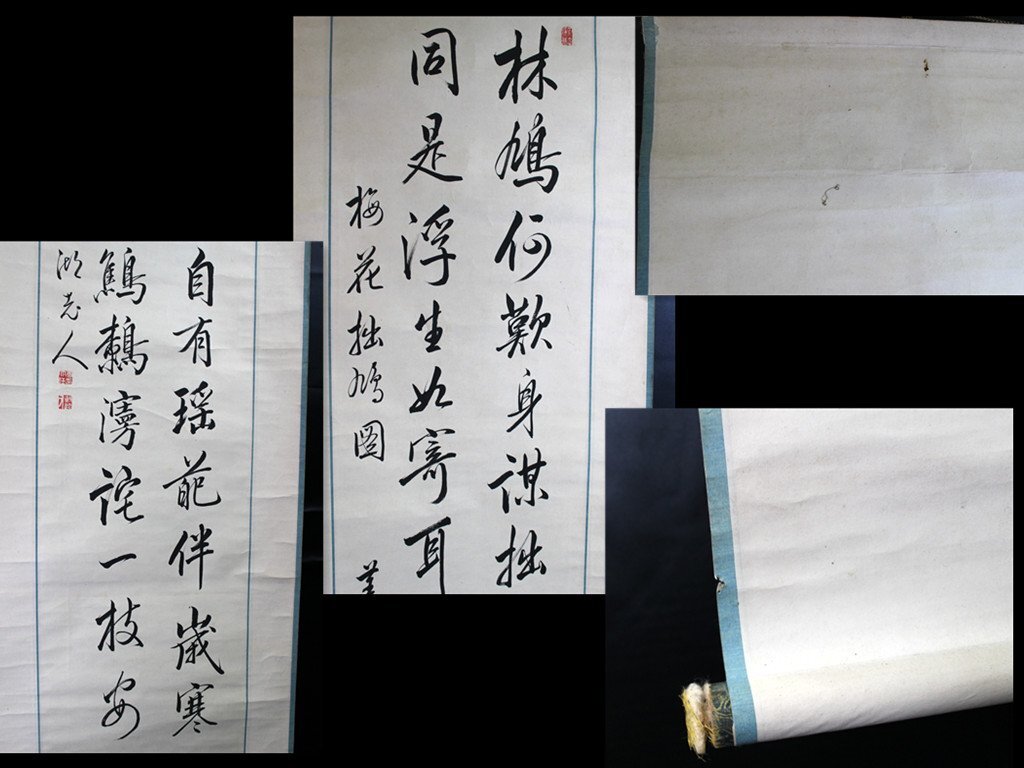 林鳩何歎身謀拙
同是浮生如寄耳
梅花拙鳩圖
自有瑶葩伴歳寒
鷦鷯漫詫一枝安
湖老人